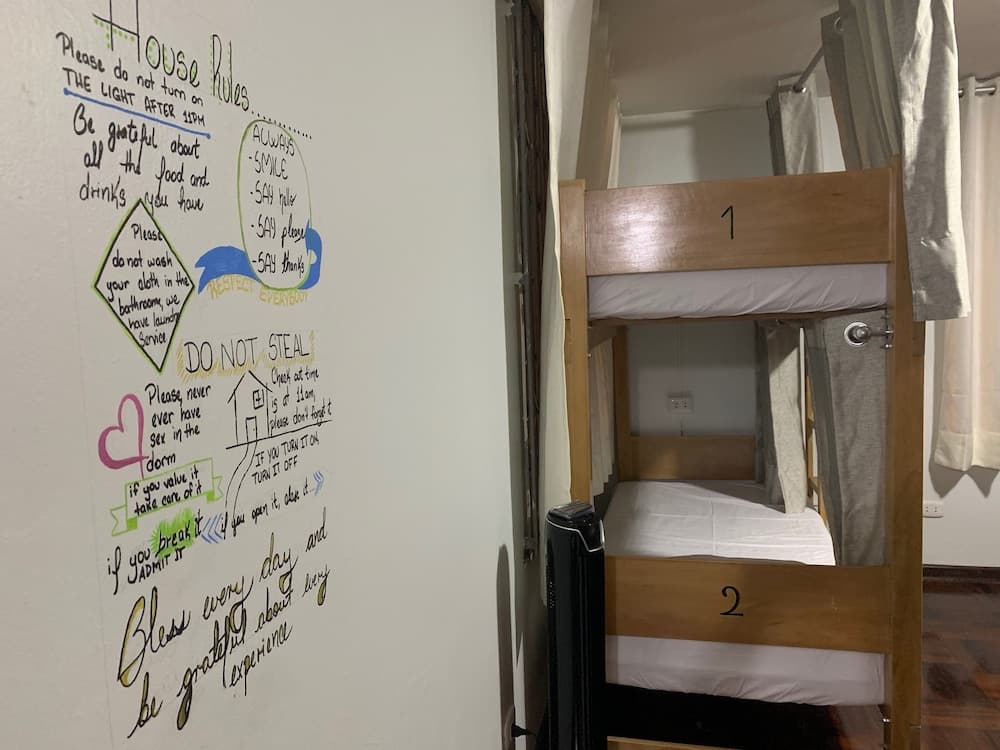 House Rules......
Please do not turn on
THE LIGHT AFTER 11PM
Be grateful about
all the food and
drinks you have
ALWAYS
- SMILE
- SAY hello
- SAY please
- SAY thanks
RESPECT EVERYBODY
Please
do not wash
your cloth in the
bathrooms, we
have laundry
service
DO NOT STEAL
Please, never
ever have
sex in the
dorm
Check out time
is at 11am,
please don't forget it
IF YOU TURN IT ON,
TURN IT OFF
if you value it
take care of it
if you break it
ADMIT IT
if you open it, close it
Bless every day and
be grateful about every
experience
1
2